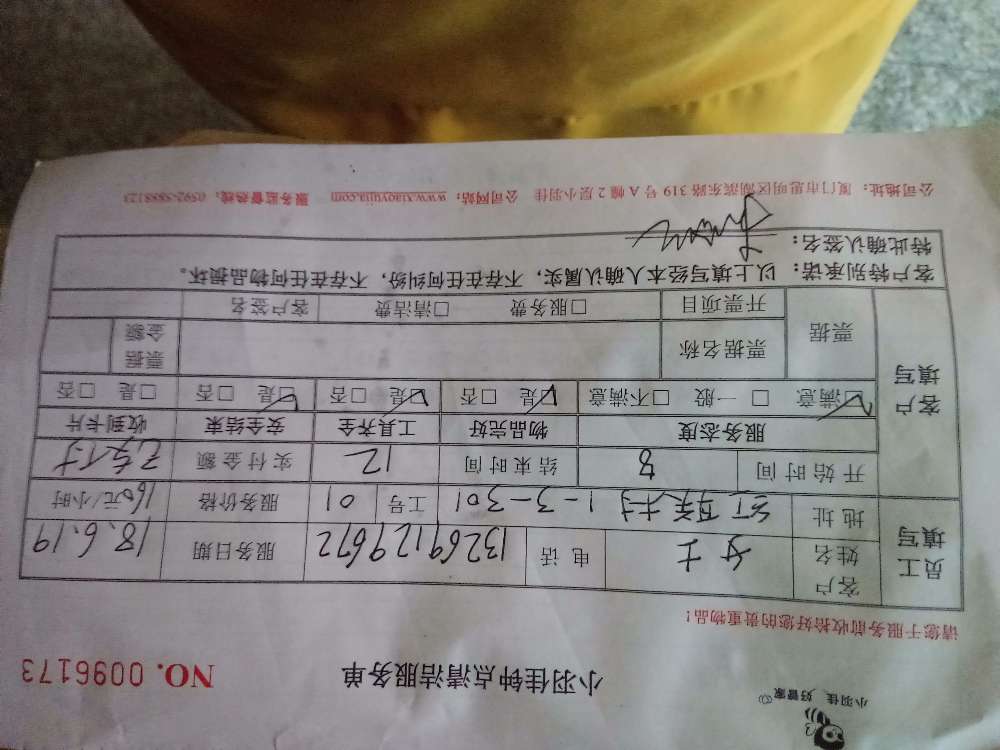 小羽佳 好管家
小羽佳钟点清洁服务单
NO. 0096173
请您于服务前收拾好您的贵重物品！
员工填写
客户姓名 女士 电话 13269129672 服务日期 18.6.19
地址 红联村 1-3-301 工号 01 服务价格 160元/小时
客户填写
开始时间 8 结束时间 12 实付金额 已支付
服务态度 物品完好 工具齐全 安全结束 收到卡片
☑满意 □一般 □不满意 ☑是 □否 ☑是 □否 ☑是 □否 □是 □否
票据 票据名称 票据金额
开票项目 □服务费 □清洁费 客户签名
客户特别承诺：以上填写经本人确认属实，不存在任何纠纷，不存在任何物品损坏。
特此确认签名：
公司地址：厦门市思明区湖滨东路 319 号 A 幢 2 层小羽佳 公司网站：www.xiaoyujia.com 服务监督热线：0592-5888123